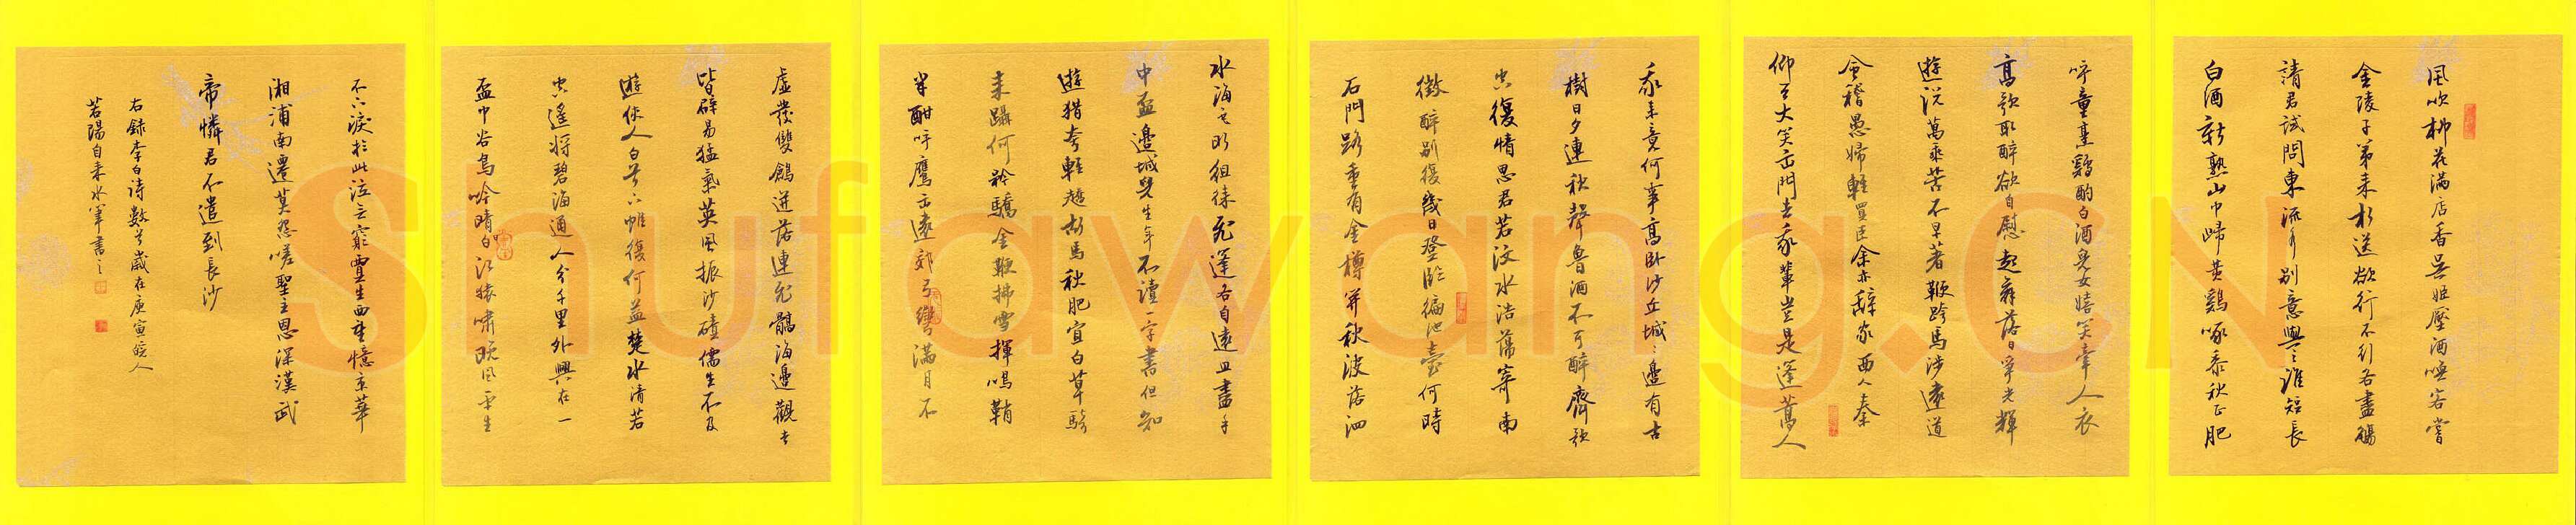 風吹柳花滿店香吳姬壓酒喚客嘗
金陵子弟來相送欲行不行各盡觴
請君試問東流水別意與之誰短長
白酒新熟山中歸黃鷄啄黍秋正肥
呼童烹鷄酌白酒兒女嬉笑牽人衣
高歌取醉欲自慰起舞落日爭光輝
遊說萬乘苦不早著鞭跨馬涉遠道
會稽愚婦輕買臣余亦辭家西入秦
仰天大笑出門去我輩豈是蓬蒿人
我來竟何事高臥沙丘城城邊有古
樹日夕連秋聲魯酒不可醉齊歌
空復情思君若汶水浩蕩寄南
徵醉別復幾日登臨徧池臺何時
石門路重有金樽開秋波落泗
水海色明徂徠飛蓬各自遠且盡手
中盃邊城兒生年不讀一字書但知
遊獵夸輕趫胡馬秋肥宜白草騎
來躡何矜驕金鞭拂雪揮鳴鞘
半酣呼鷹出遠郊弓彎滿月不
虛發雙鶬迸落連飛髇海邊觀者
皆辟易猛氣英風振沙磧儒生不及
遊俠人白首下帷復何益楚水清若
空遙將碧海通人分千里外興在一
盃中谷鳥吟晴日江猿嘯晚風平生
不下淚於此泣無窮賈生西望憶京華
湘浦南遷莫怨嗟聖主恩深漢武
帝憐君不遣到長沙
右錄李白詩數首歲在庚寅皖人
若陽自來水筆書之
Shufawang.CN